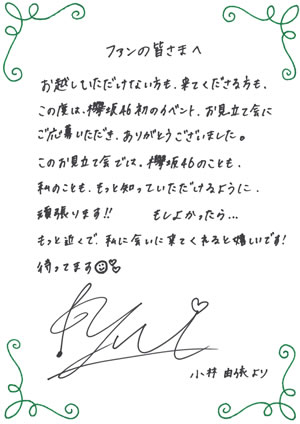 ファンの皆さまへ
お越しいただけない方も、来てくださる方も、
この度は、欅坂46初のイベント、お見立て会に
ご応募いただき、ありがとうございました。
このお見立て会では、欅坂46のことも、
私のことも、もっと知っていただけるように、
頑張ります!! もしよかったら...
もっと近くで、私に会いに来てくれると嬉しいです!
待ってます
Yui
小林 由依より